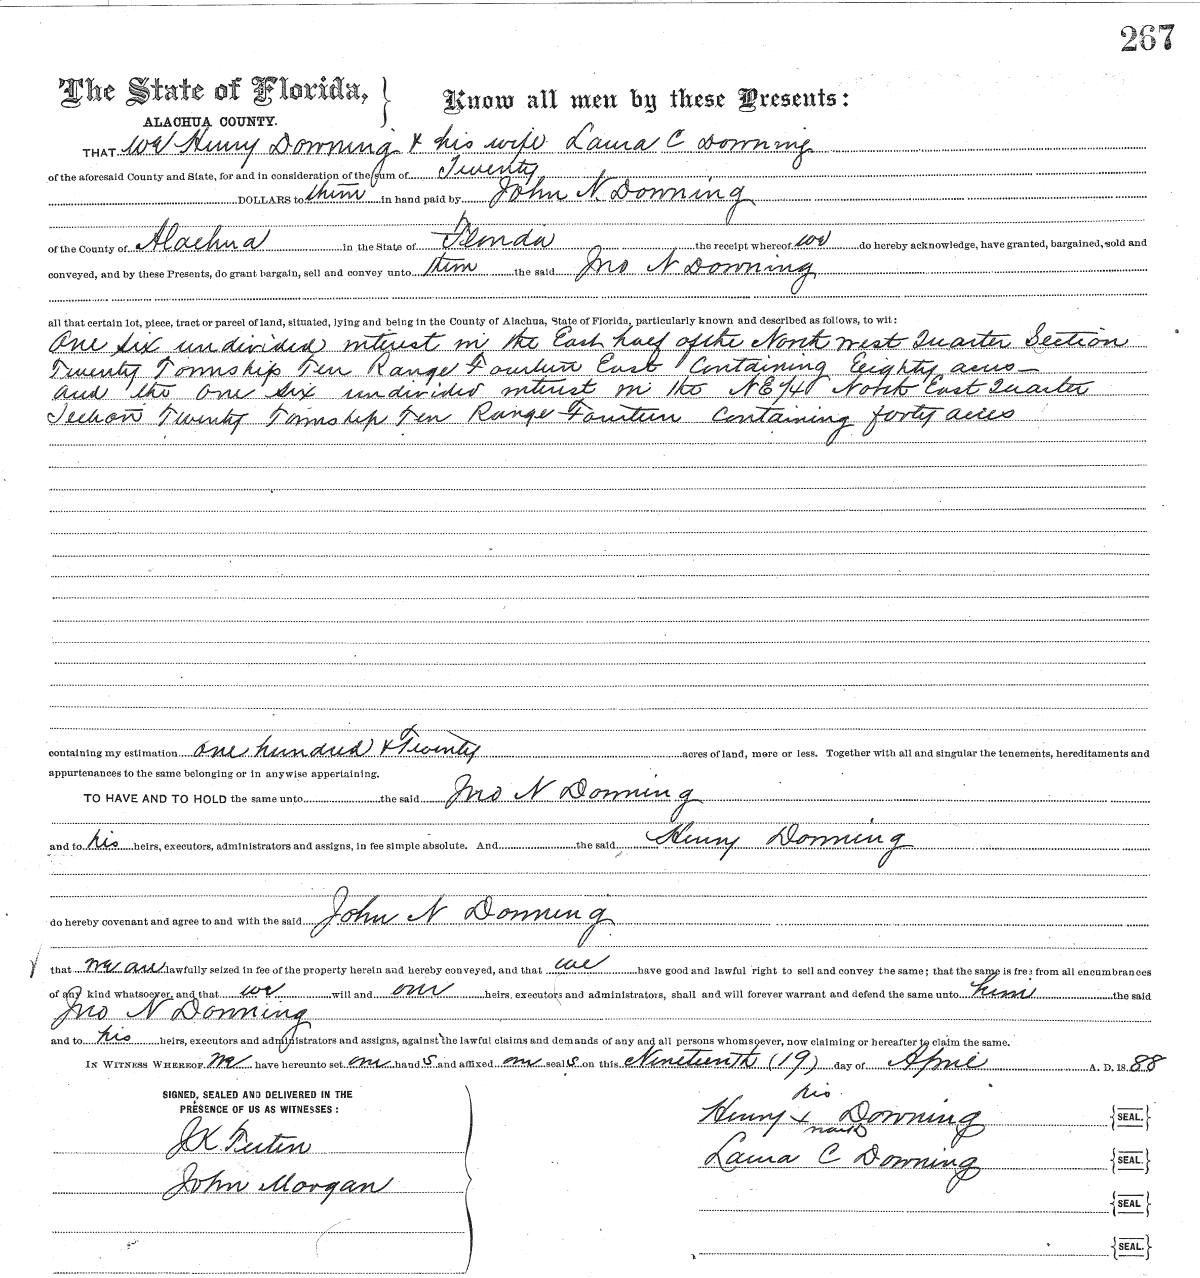 267
The State of Florida, } Know all men by these Presents:
ALACHUA COUNTY.
THAT we Henry Downing & his wife Laura C Downing
of the aforesaid County and State, for and in consideration of the sum of Twenty
DOLLARS to them in hand paid by John N Downing
of the County of Alachua in the State of Florida the receipt whereof we do hereby acknowledge, have granted, bargained, sold and
conveyed, and by these Presents, do grant bargain, sell and convey unto them the said Jno N Downing
all that certain lot, piece, tract or parcel of land, situated, lying and being in the County of Alachua, State of Florida, particularly known and described as follows, to wit:
One six undivided interest in the East half of the North west Quarter Section
Twenty Township Ten Range Fourteen East Containing Eighty acres—
and the one six undivided interest in the NE/4 North East Quarter
Section Twenty Township Ten Range Fourteen Containing forty acres
containing my estimation one hundred & Twenty acres of land, more or less. Together with all and singular the tenements, hereditaments and
appurtenances to the same belonging or in anywise appertaining.
TO HAVE AND TO HOLD the same unto the said Jno N Downing
and to his heirs, executors, administrators and assigns, in fee simple absolute. And the said Henry Downing
do hereby covenant and agree to and with the said John N Downing
that we are lawfully seized in fee of the property herein and hereby conveyed, and that we have good and lawful right to sell and convey the same; that the same is free from all encumbrances
of any kind whatsoever, and that we will and our heirs, executors and administrators, shall and will forever warrant and defend the same unto him the said
Jno N Downing
and to his heirs, executors and administrators and assigns, against the lawful claims and demands of any and all persons whomsoever, now claiming or hereafter to claim the same.
IN WITNESS WHEREOF we have hereunto set our hands and affixed our seals on this Nineteenth (19) day of April A. D. 1888
SIGNED, SEALED AND DELIVERED IN THE
PRESENCE OF US AS WITNESSES:
his
Henry x Downing {SEAL.}
mark
J K
Laura C Downing {SEAL.}
John Morgan
{SEAL.}
{SEAL.}